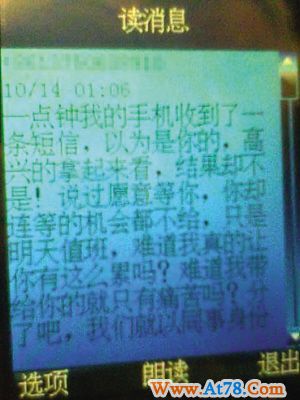 读消息
10/14 01:06
一点钟我的手机收到了一
条短信，以为是你的，高
兴的拿起来看，结果却不
是！说过愿意等你，你却
连等的机会都不给，只是
明天值班，难道我真的让
你有这么累吗？难道我带
给你的就只有痛苦吗？分
了吧，我们就以同事身份
选项 朗读 退出
Www.At78.Com